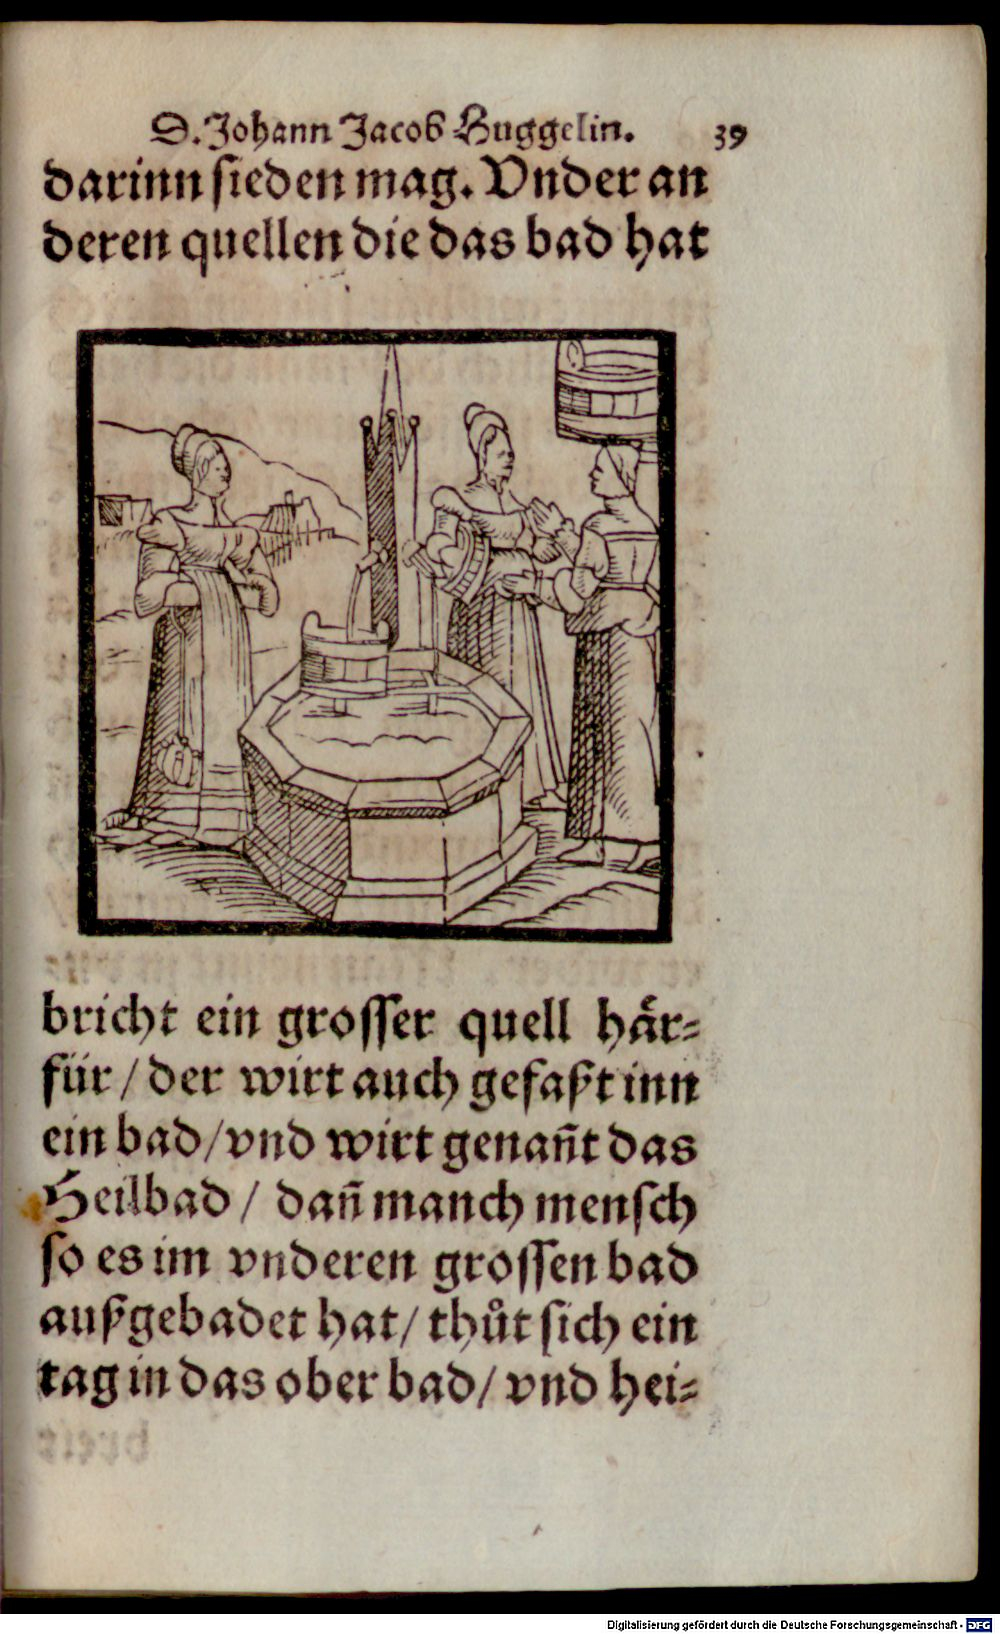 D. Johann Jacob Huggelin. 39
darinn sieden mag. Vnder an
deren quellen die das bad hat
bricht ein grosser quell här⸗
für / der wirt auch gefaßt inn
ein bad / vnd wirt genañt das
Heilbad / dañ manch mensch
so es im vnderen grossen bad
außgebadet hat / thůt sich ein
tag in das ober bad / vnd hei⸗
Digitalisierung gefördert durch die Deutsche Forschungsgemeinschaft - DFG